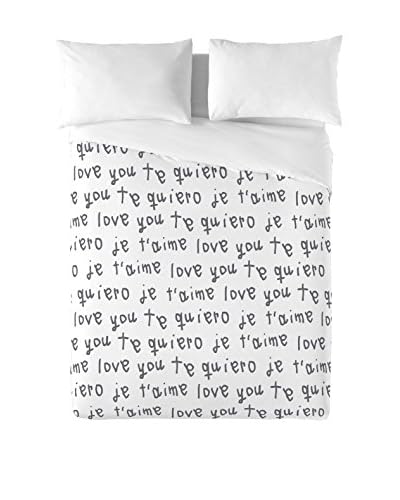 quiero je t'aime love
love you te quiero je
me love you te quiero
quiero je t'aime love
ime love you te quiero
ro je t'aime love you te
t'aime love you te quiero
quiero je t'aime love you
you te quiero je t'aime
te quiero je t'aime love
e t'aime love you te
iero je t'aime love you te
love you te quiero
quiero je t'aime love you